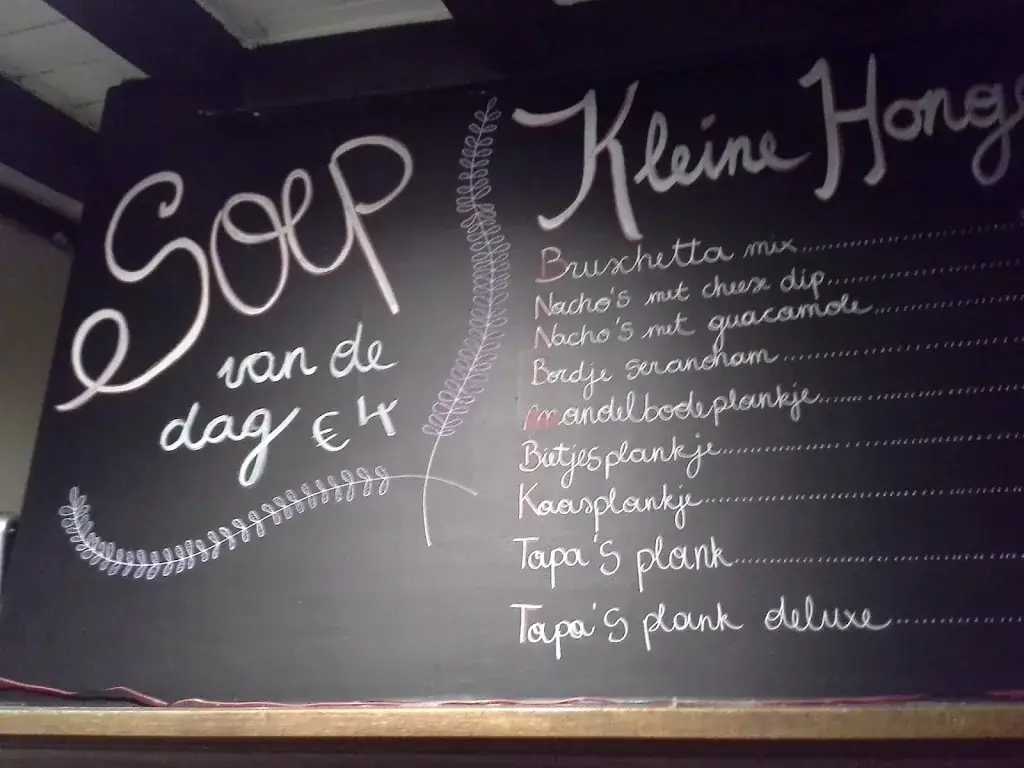 Soep
van de
dag € 4
Kleine Hong
Bruschetta mix
Nacho's met cheese dip
Nacho's met guacamole
Bordje seranoham
mandelbodeplankje
Bietjesplankje
Kaasplankje
Tapa's plank
Tapa's plank deluxe